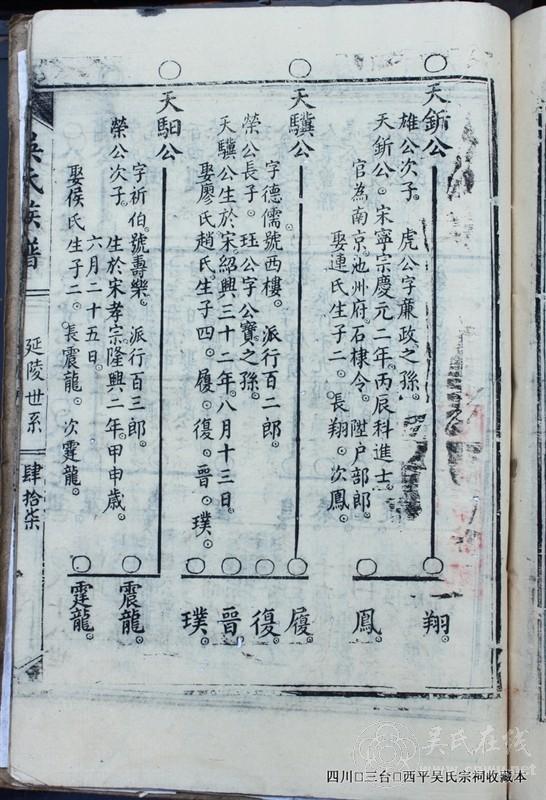 天鈃公
雄公次子。虎公字廉政之孫。
天鈃公。宋寧宗慶元二年。丙辰科進士。
官為南京池州府石棣令。陞户部郎。
娶連氏生子二。長翔。次鳳。
翔。
鳳。
天驥公
字德儒號西樓。派行百二郎。
榮公長子。珏公字公寶之孫。
天驥公生於宋紹興三十二年。八月十三日。
娶廖氏趙氏生子四。履。復。晉。璞。
履。
復。
晉。
璞。
天駟公
字祈伯。號壽樂。派行百三郎。
榮公次子。生於宋孝宗隆興二年。甲申歲。
六月二十五日。
娶侯氏生子二。長震龍。次霆龍。
震龍。
霆龍。
吳氏族譜
延陵世系
肆拾柒
吴氏在线
www.cnwu.net
四川□三台□西平吴氏宗祠收藏本